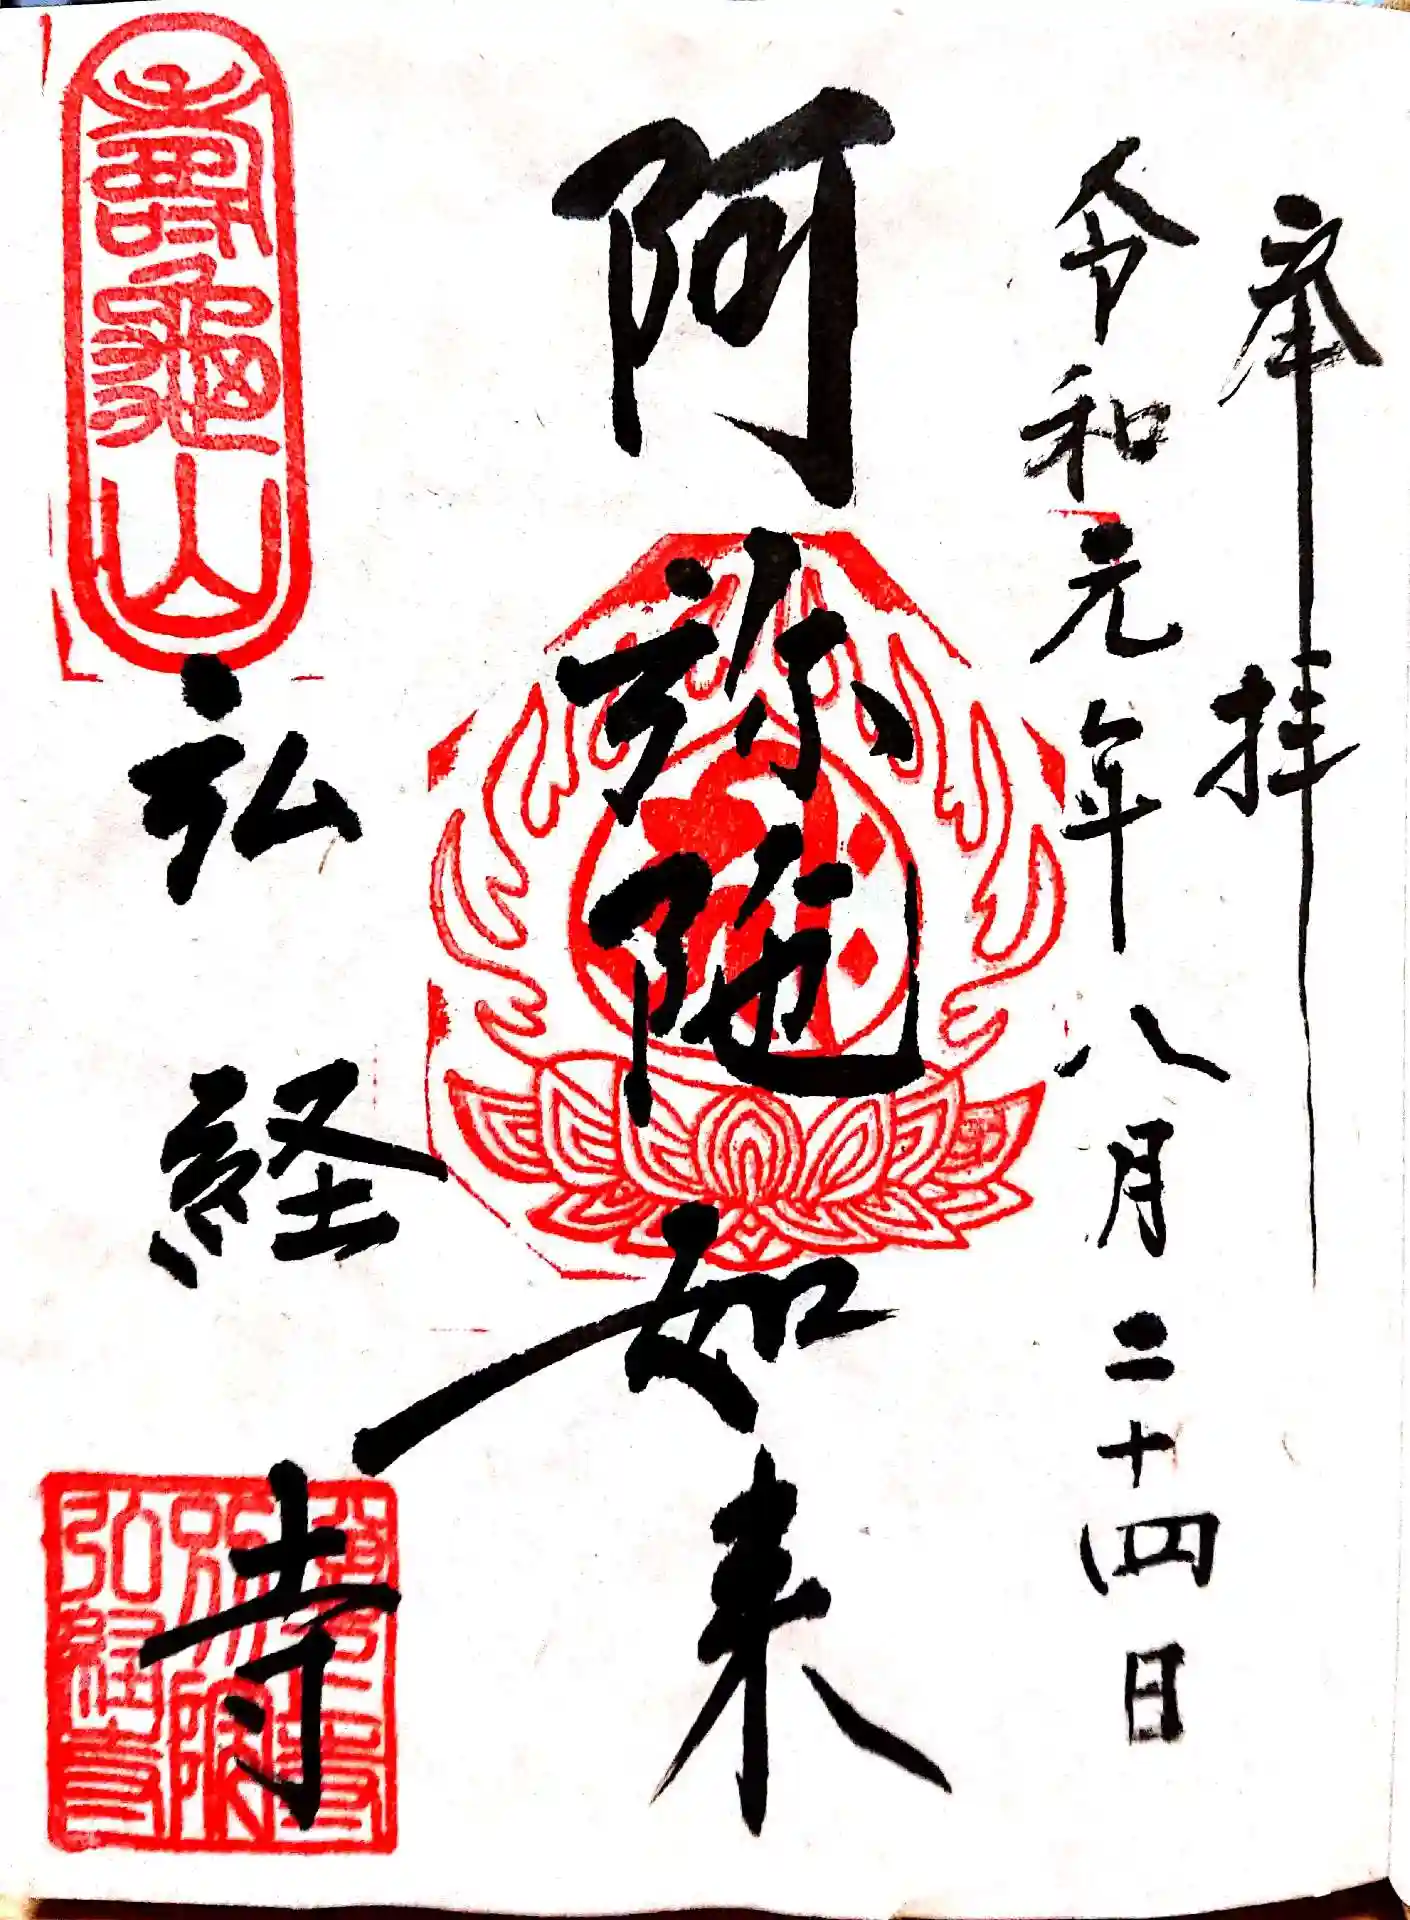 奉拝
令和元年八月二十四日
阿弥陀如来
壽亀山
弘経寺
別院
弘經寺